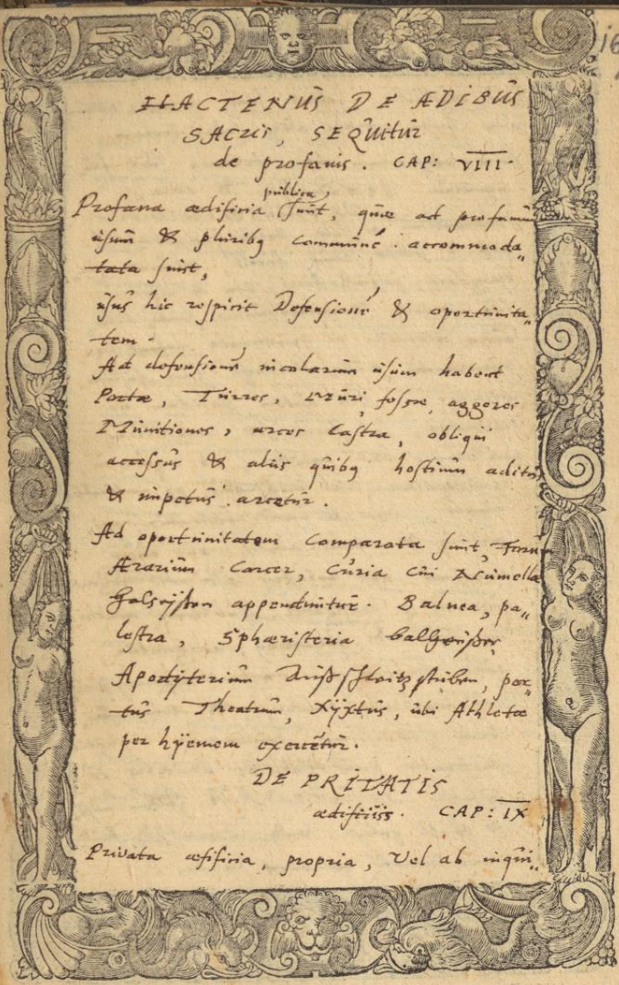 HACTENUS DE ÆDIBUS
SACRIS, SEQUITUR
de profanis. CAP: VIII
publica,
Profana ædificia sunt, quæ ad profanum
usum & pluribq commune accommoda„
tata sunt,
usus hic respicit Defensioné & oportunita„
tem.
Ad defensionem incolarum usum habent
Portæ, Turres, Muri, fossæ, aggeres
Munitiones, arces Castra, obliqui
accessus & aliis quibq hostium aditus
& impetus arcetur.
Ad oportunitatem Comparata sunt, Forum
Ærarium Carcer, Curia cui Numella
Halseyßen appenduntur. Balnea, pa„
lestra, Sphæristeria balheußer
Apodyterium Außschloitzstuben, por„
tus Theatrum, Xÿxtus, ubi Athletæ
per hÿemem exercétur.
DE PRIVATIS
ædifitiis. CAP: IX
Privata æfificia, propria, Vel ab inqui„